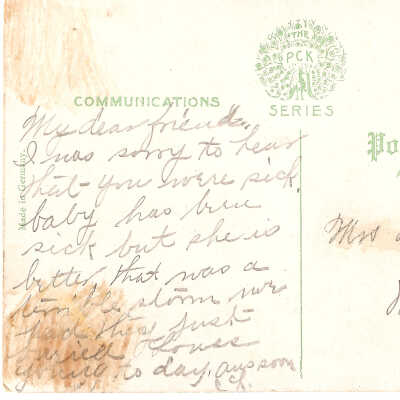 THE
PCK
SERIES
COMMUNICATIONS
Made in Germany.
Po
Mrs
My dear friend
I was sorry to hear
that you were sick.
baby has been
sick but she is
better that was a
terrible storm were
had they just
buried
to day. Ans soon